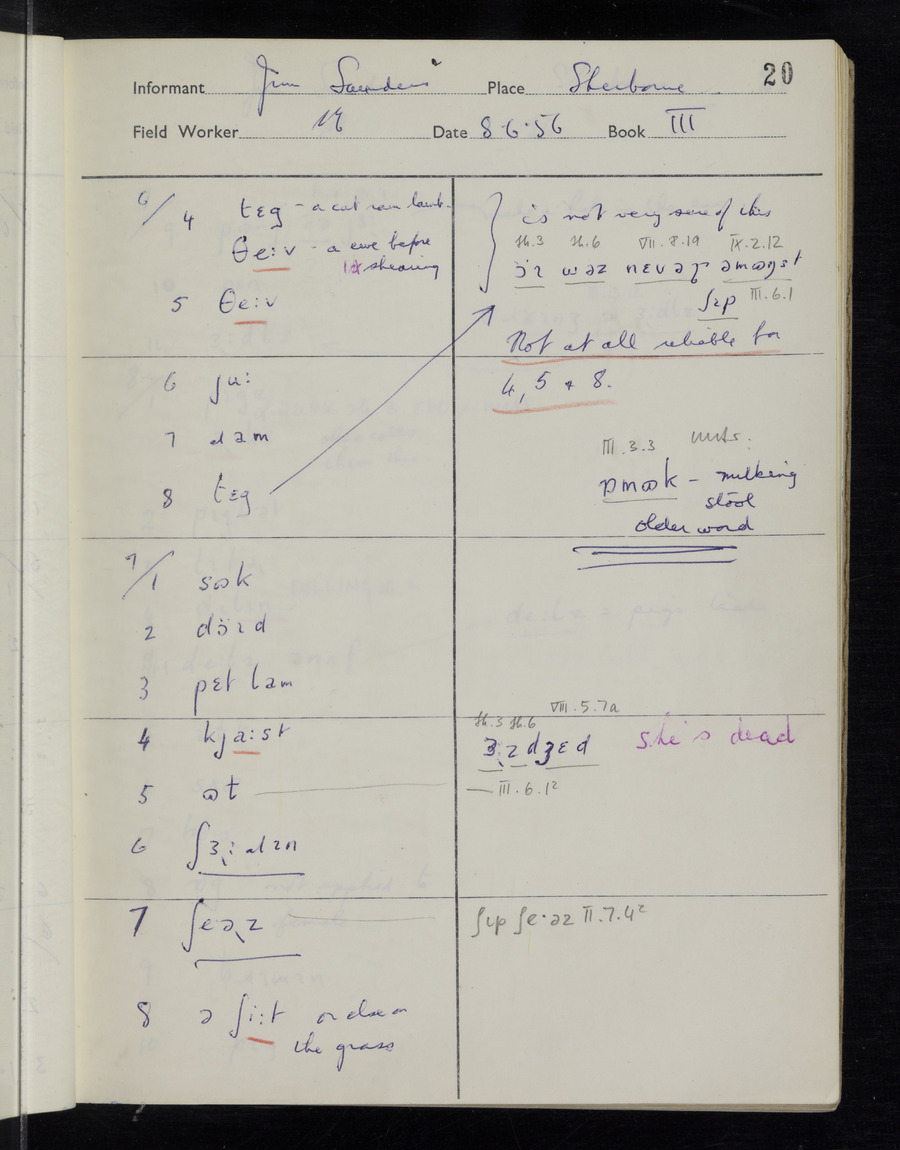 20
Informant Jim Saunders Place Sherborne
Field Worker Date 8·6·56 Book III
6/4 tɛg – a cut ram lamb
θe:v – a ewe before
1st shearing
5 θe:v
6 ju:
7 dam
8 tɛg
is not very sure of this
th.3 th.6 VII.8.19 IX.2.12
nɛvəɽ əmɒŋst
ʃɪp III.6.1
Not at all reliable for
4, 5 & 8.
III.3.3
milking
stool
older word
7/1 sɒk
2
3 pɛt lam
4 kja:st
5 ɒt
6
7
8 ə ʃi:t or else on
the grass
VIII.5.7a
th.3 th.6
she's dead
III.6.12
ʃɪp ʃe·əz II.7.4²